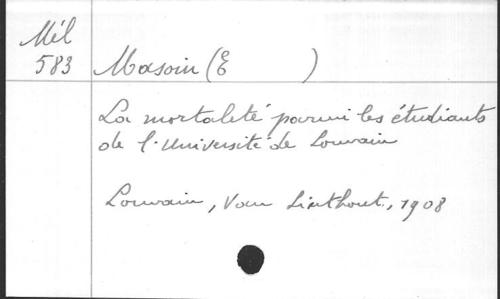 Mél
583
Masoin (E )
La mortalité parmi les étudiants
de l'Université de Louvain
Louvain, Van Linthout, 1908